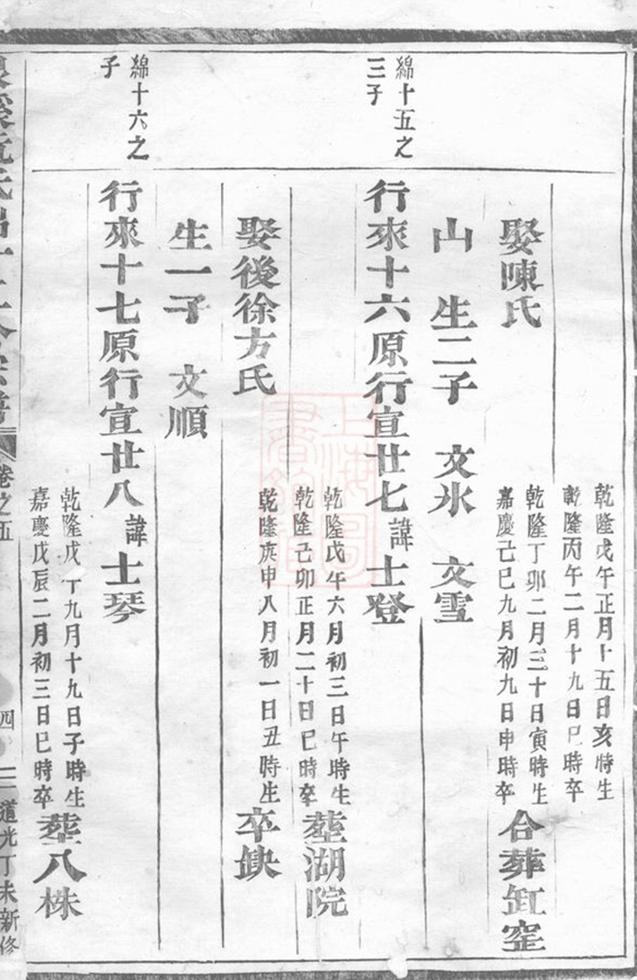 乾隆戊午正月十五日亥時生
乾隆丙午二月十九日巳時卒
娶陳氏
乾隆丁卯二月三十日寅時生
嘉慶己巳九月初九日申時卒
合葬缸窑
山 生二子 文氷 文雪
綿十五之
三子
行來十六原行宣廿七諱士登
乾隆戊午六月初三日午時生
乾隆己卯正月二十日巳時卒
塟湖院
娶後徐方氏
乾隆庚申八月初一日丑時生
卒缺
生一子 文順
綿十六之
子
行來十七原行宣廿八諱士琴
乾隆戊 九月十九日子時生
嘉慶戊辰二月初三日巳時卒
塟八株
卷之五
四
道光丁未新修